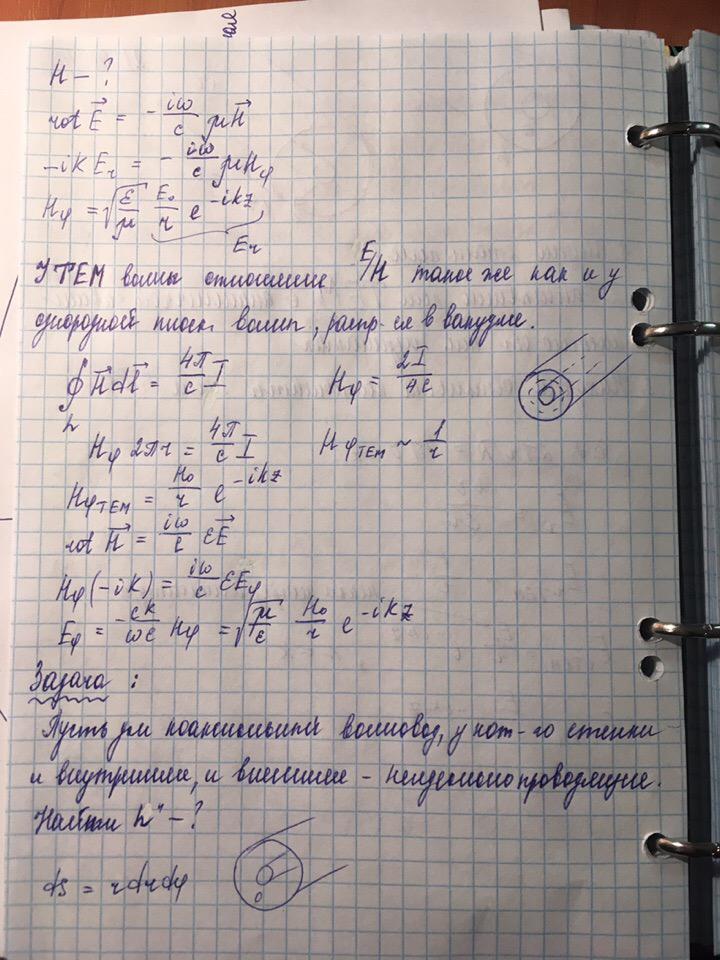 H - ?
rot E⃗ = - iω/c μH⃗
-iK E_r = - iω/c μH_φ
H_φ = √(ε/μ) E₀/r e^(-ikz)
E_r
У TEM волны отношение E/H такое же как и у
однородной плоск. волны, распр-ся в вакууме.
∮ H⃗dl⃗ = 4π/c I   H_φ = 2I/4c
H_φ 2πr = 4π/c I   H_φTEM ~ 1/r
H_φTEM = H₀/r e^(-ikz)
rot H⃗ = iω/c εE⃗
H_φ(-iK) = iω/c εE_φ
E_φ = -cK/ωε H_φ = √(μ/ε) H₀/r e^(-iKz)
Задача :
Пусть коаксиальный волновод, у кот-го стенки
и внутренние, и внешние - неидеально проводящие.
Найти h" - ?
ds = rdrdφ